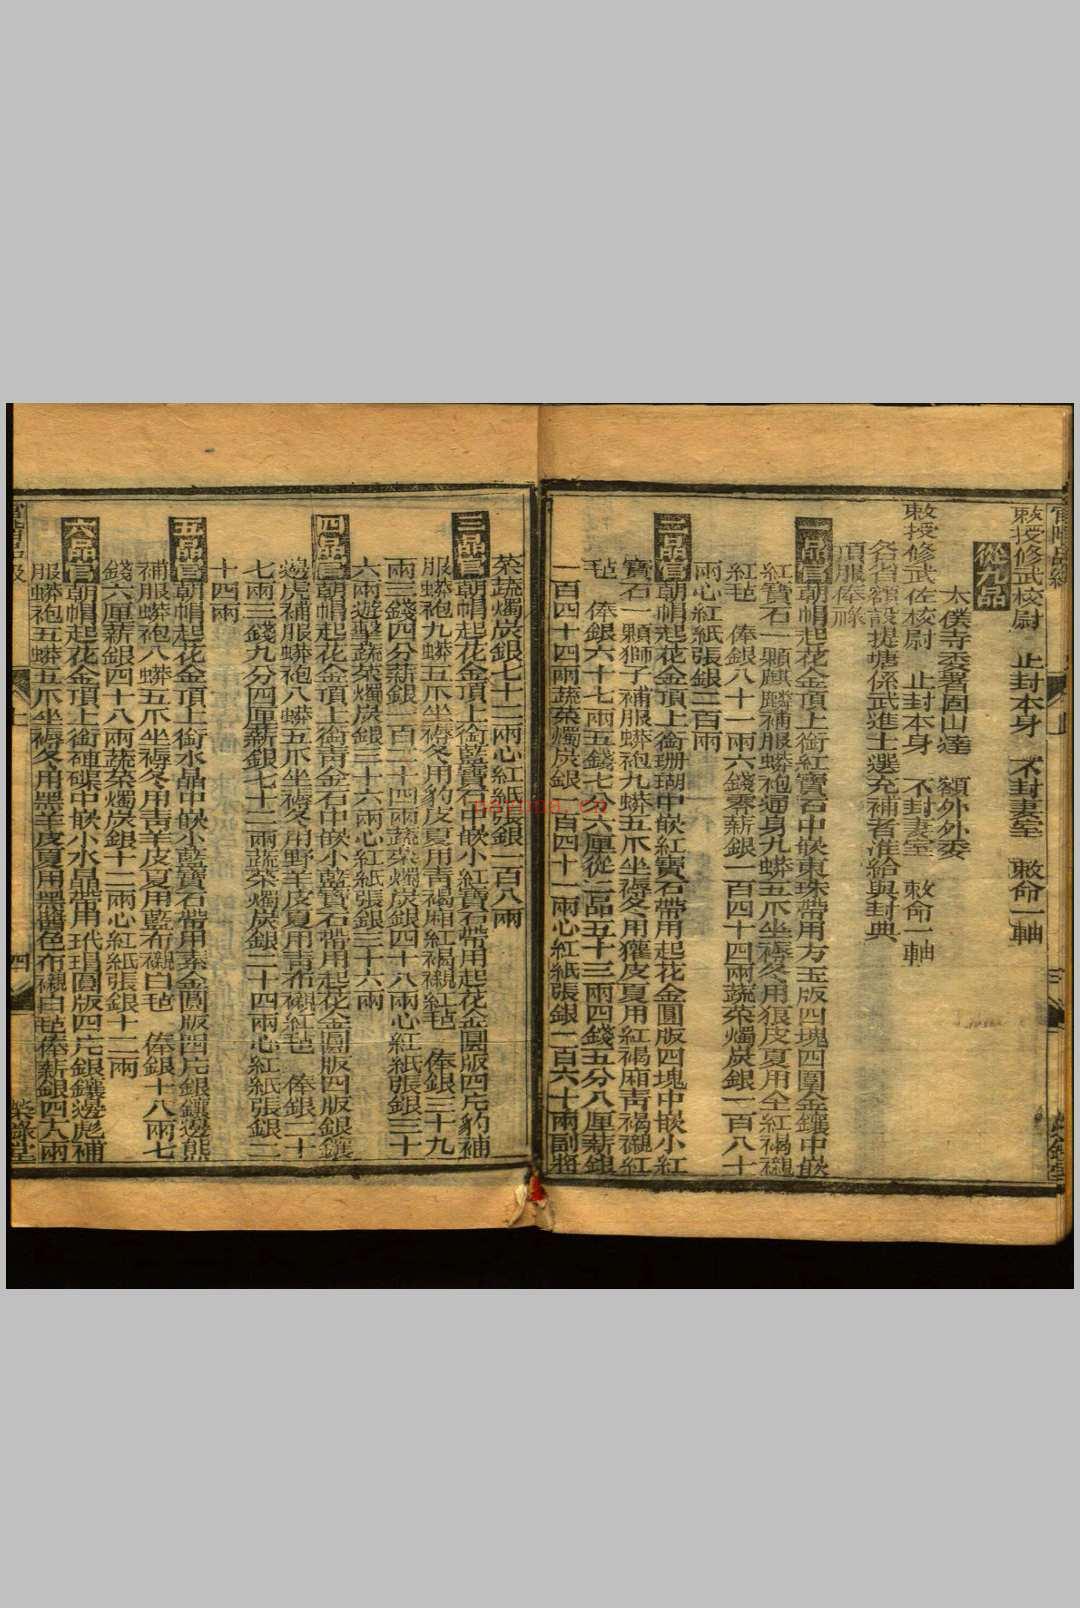 敕授修武校尉 止封本身 不封妻室 敕命一軸
從九品
太僕寺委署固山達 額外外委
敕授修武佐校尉 止封本身 不封妻室 敕命一軸
各省額設提塘係武進士選充補者准給與封典
頂服俸祿
一品官朝帽起花金頂上銜紅寶石中嵌東珠帶用方玉版四塊四圍金鑲中嵌
紅寶石一顆麒麟補服蟒袍通身九蟒五爪坐褥冬用狼皮夏用全紅褐襯
紅毡 俸銀八十一兩六錢零薪銀一百四十四兩蔬菜燭炭銀一百八十
兩心紅紙張銀二百兩
二品官朝帽起花金頂上銜珊瑚中嵌紅寶石帶用起花金圓版四塊中嵌小紅
寶石一顆獅子補服蟒袍九蟒五爪坐褥冬用獾皮夏用紅褐廂青褐襯紅
毡 俸銀六十七兩五錢七分六厘從二品五十三兩四錢五分八厘薪銀
一百四十四兩蔬菜燭炭銀一百四十一兩心紅紙張銀一百六十兩副將
菜蔬燭炭銀七十二兩心紅紙張銀一百八兩
三品官朝帽起花金頂上銜藍寶石中嵌小紅寶石帶用起花金圓版四片豹補
服蟒袍九蟒五爪坐褥冬用豹皮夏用青褐廂紅褐襯紅毡 俸銀三十九
兩三錢四分薪銀一百二十四兩蔬菜燭炭銀四十八兩心紅紙張銀三十
六兩遊擊蔬菜燭炭銀三十六兩心紅紙張銀三十六兩
四品官朝帽起花金頂上銜青金石中嵌小藍寶石帶用起花金圓版四版銀鑲
邊虎補服蟒袍八蟒五爪坐褥冬用野羊皮夏用青布襯紅毡 俸銀二十
七兩三錢九分四厘薪銀七十二兩蔬菜燭炭銀二十四兩心紅紙張銀二
十四兩
五品官朝帽起花金頂上銜水晶中嵌小藍寶石帶用素金圓版四片銀鑲邊熊
補服蟒袍八蟒五爪坐褥冬用青羊皮夏用藍布襯白毡 俸銀十八兩七
錢六厘薪銀四十八兩蔬菜燭炭銀十二兩心紅紙張銀十二兩
六品官朝帽起花金頂上銜硨磲中嵌小水晶帶用玳瑁圓版四片銀鑲邊彪補
服蟒袍五蟒五爪坐褥冬用黑羊皮夏用醬色布襯白毡俸薪銀四八兩
四
榮祿堂